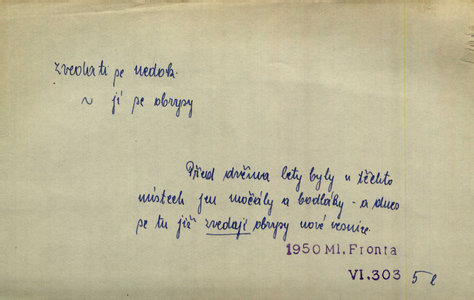 zvedati se nedok.
~ jí se obrysy
Před dvěma lety byly u těchto
místech jen močály a bodláky - a dnes
se tu již zvedají obrysy nové vesnice.
1950 Ml. Fronta
VI. 303 5 l